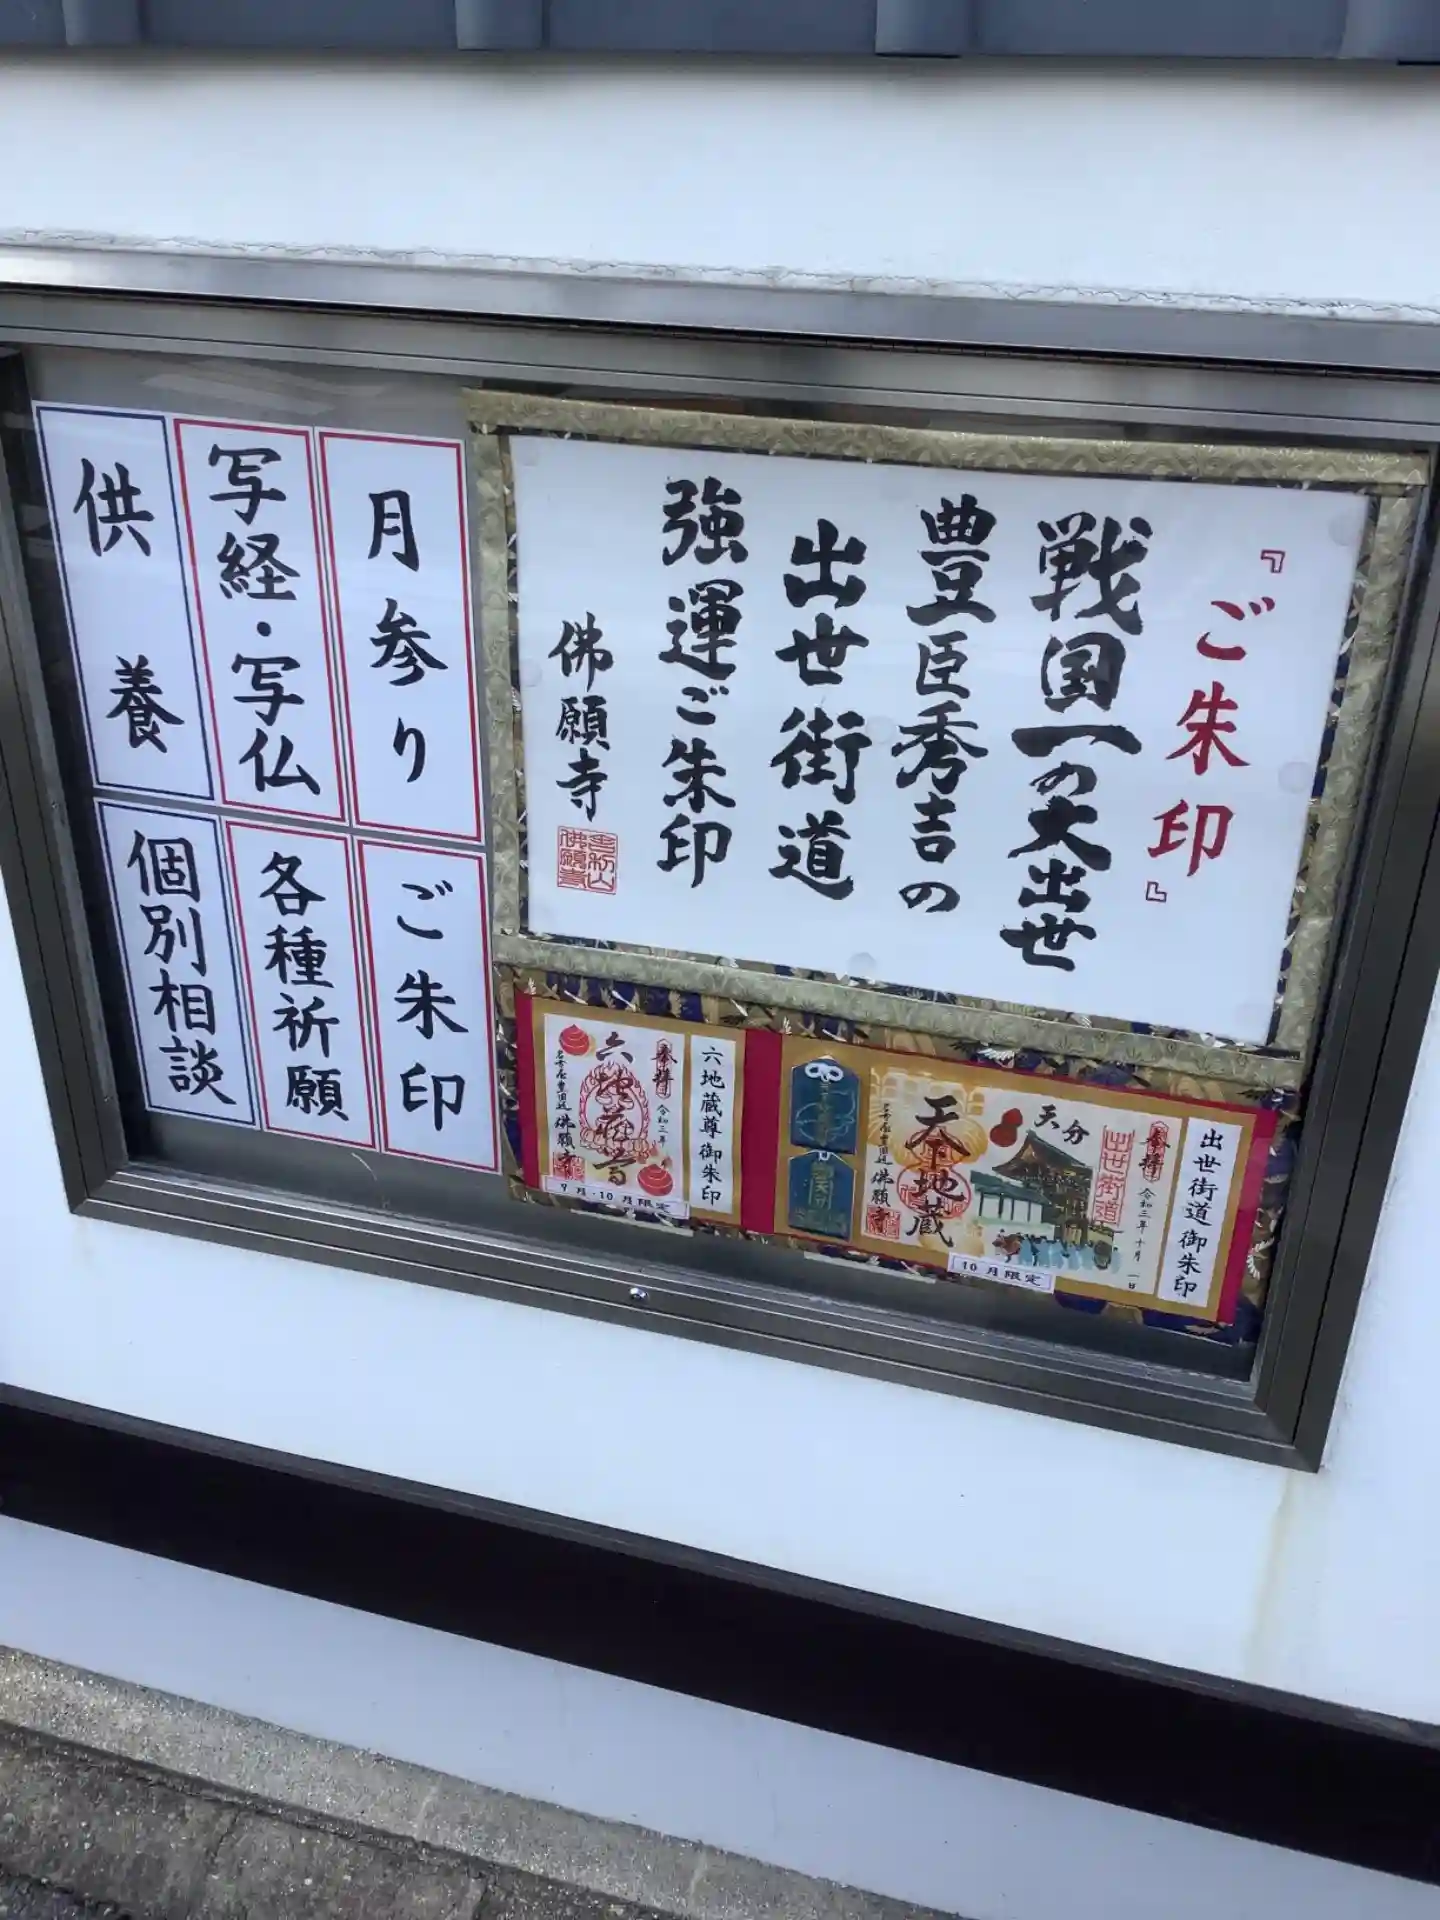 『ご朱印』
戦国一の大出世
豊臣秀吉の
出世街道
強運ご朱印
佛願寺
月参り
写経・写仏
供養
ご朱印
各種祈願
個別相談
出世街道御朱印
奉拝
令和三年十月一日
出世街道
天分
天下地蔵
佛願寺
10月限定
六地蔵尊御朱印
奉拝
令和三年
六地蔵尊
佛願寺
9月・10月限定